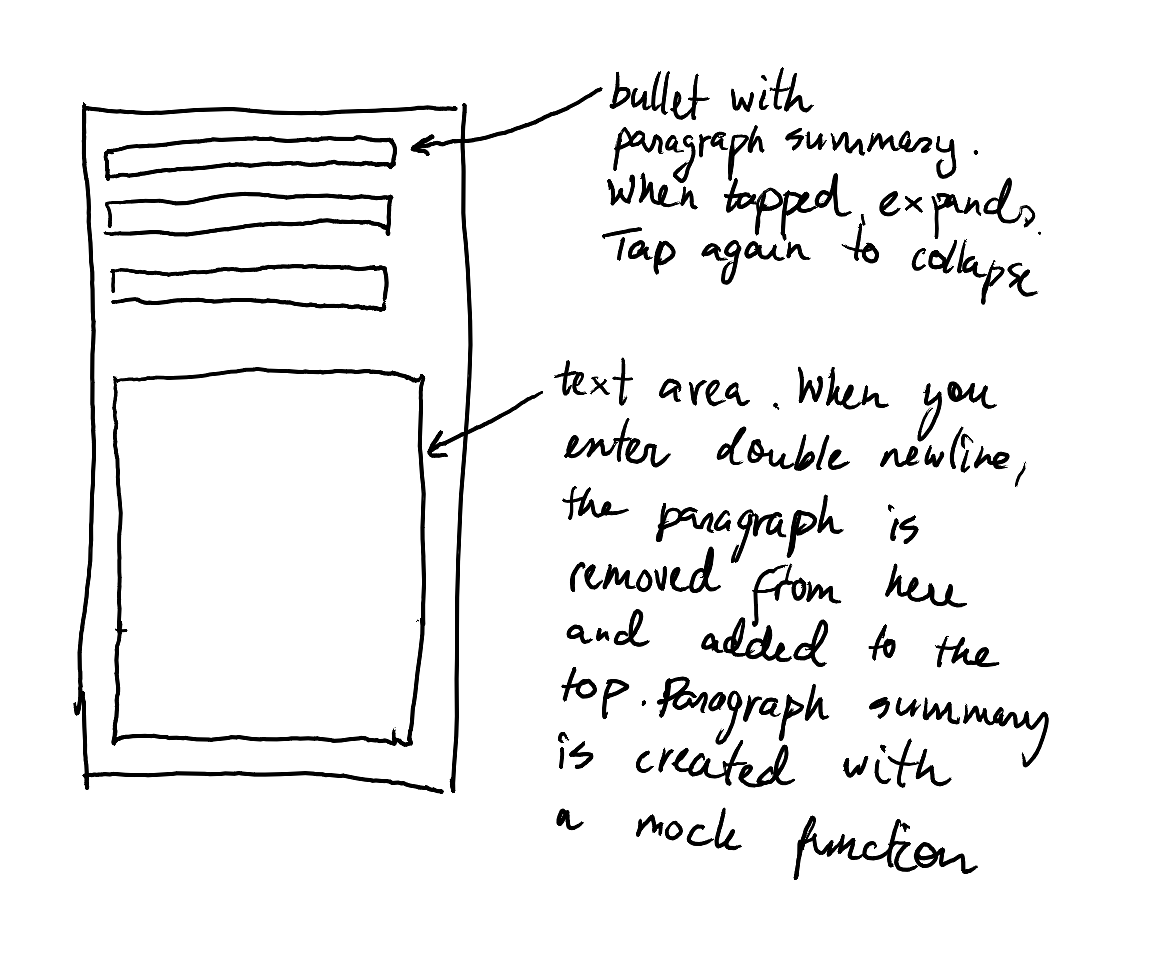 bullet with
paragraph summary.
When tapped, expands.
Tap again to collapse
text area. When you
enter double newline,
the paragraph is
removed from here
and added to the
top. Paragraph summary
is created with
a mock function